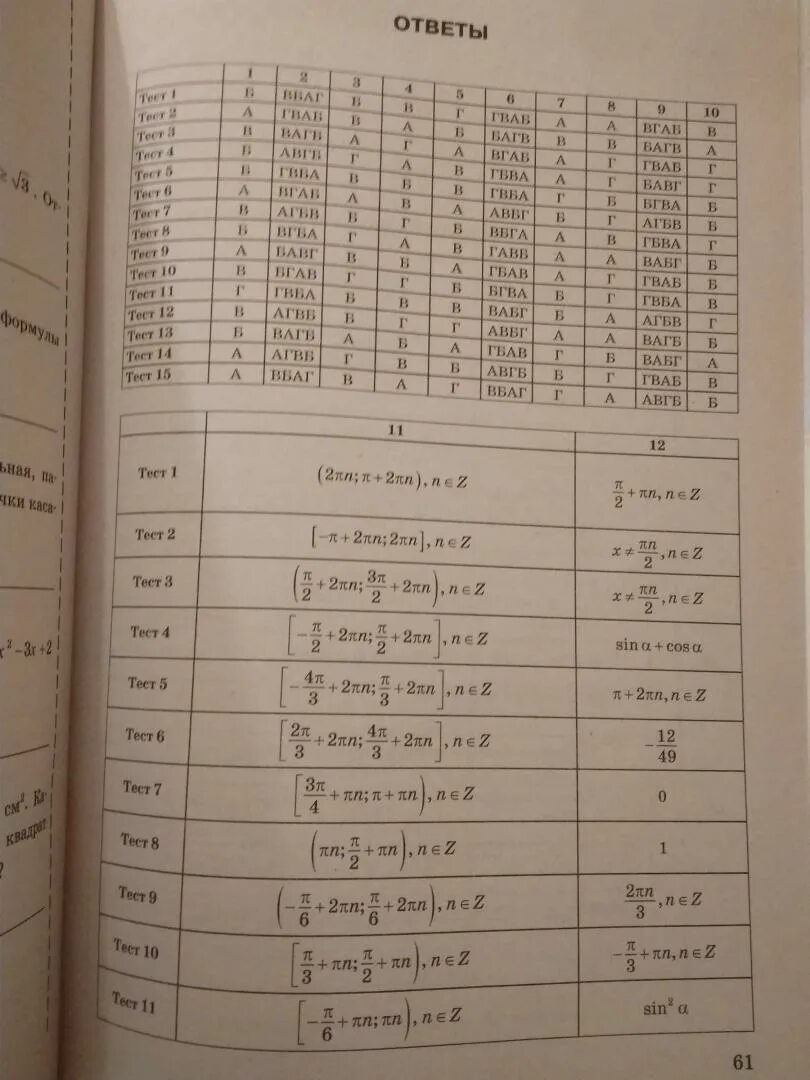 ≥ √3 . От.
формулы
ьная, па-
чки каса-
x² −3x+2
см². Ка-
квадрат
?
ОТВЕТЫ
1 2 3 4 5 6 7 8 9 10
Тест 1 Б ВБАГ Б В Г ГВАБ А А ВГАБ В
Тест 2 А ГВАБ В А Б БАГВ В В БАГВ А
Тест 3 В ВАГБ А Г А ВГАБ А Г ГВАБ Г
Тест 4 Б АВГБ Г А В ГБВА А Г БАВГ Г
Тест 5 Б ГВБА В Б В ГВБА Г Б БГВА Б
Тест 6 А ВГАБ А В А АВБГ Б Г АГБВ Б
Тест 7 В АГБВ Б Г Б ВБГА А В ГБВА Г
Тест 8 Б ВГБА Г А В ГАБВ А А ВАБГ Б
Тест 9 А БАВГ В Б А ГБАВ А Г ГВАБ Б
Тест 10 В ВГАБ Г Г Б БГВА Б Г ГБВА В
Тест 11 Г ГВБА Б В В ВАБГ Б А АГБВ Г
Тест 12 В АГВБ Б Г Г АВБГ А А ВАГБ Б
Тест 13 Б ВАГБ А Б А ГБАВ Г Б ВАБГ А
Тест 14 А АГВБ Г В Б АВГБ Б Г ГВАБ В
Тест 15 А ВБАГ В А Г ВБАГ Г А АВГБ Б
11 12
Тест 1 (2πn; π + 2πn), n ∈ Z π/2 + πn, n ∈ Z
Тест 2 [−π + 2πn; 2πn], n ∈ Z x ≠ πn/2, n ∈ Z
Тест 3 (π/2 + 2πn; 3π/2 + 2πn), n ∈ Z x ≠ πn/2, n ∈ Z
Тест 4 [−π/2 + 2πn; π/2 + 2πn], n ∈ Z sin α + cos α
Тест 5 [−4π/3 + 2πn; π/3 + 2πn], n ∈ Z π + 2πn, n ∈ Z
Тест 6 [2π/3 + 2πn; 4π/3 + 2πn], n ∈ Z −12/49
Тест 7 [3π/4 + πn; π + πn), n ∈ Z 0
Тест 8 (πn; π/2 + πn), n ∈ Z 1
Тест 9 (−π/6 + 2πn; π/6 + 2πn), n ∈ Z 2πn/3, n ∈ Z
Тест 10 [π/3 + πn; π/2 + πn), n ∈ Z −π/3 + πn, n ∈ Z
Тест 11 [−π/6 + πn; πn), n ∈ Z sin² α
61